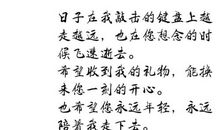 日子在我敲击的键盘上越
走越远，也在您想念的时
候飞逃逝去。
希望收到我的礼物，能换
来您一刻的开心。
也希望您永远年轻，永远
陪着我走下去。